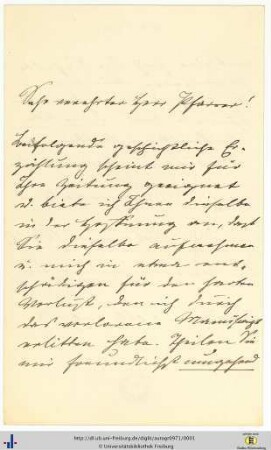 Sehr verehrter Herr Pfarrer!
Beifolgende geschichtliche Er-
zählung scheint mir für
Ihre Zeitung geeignet
u. biete ich Ihnen dieselbe
in der Hoffnung an, daß
Sie dieselbe aufnehmen
u. mich in etwa ent-
schädigen für den harten
Verlust, den ich durch
das verlorene Manuscript
erlitten habe. Theilen Sie
mir freundlichst umgehend
http://dl.ub.uni-freiburg.de/diglit/autogr0971/0001
© Universitätsbibliothek Freiburg